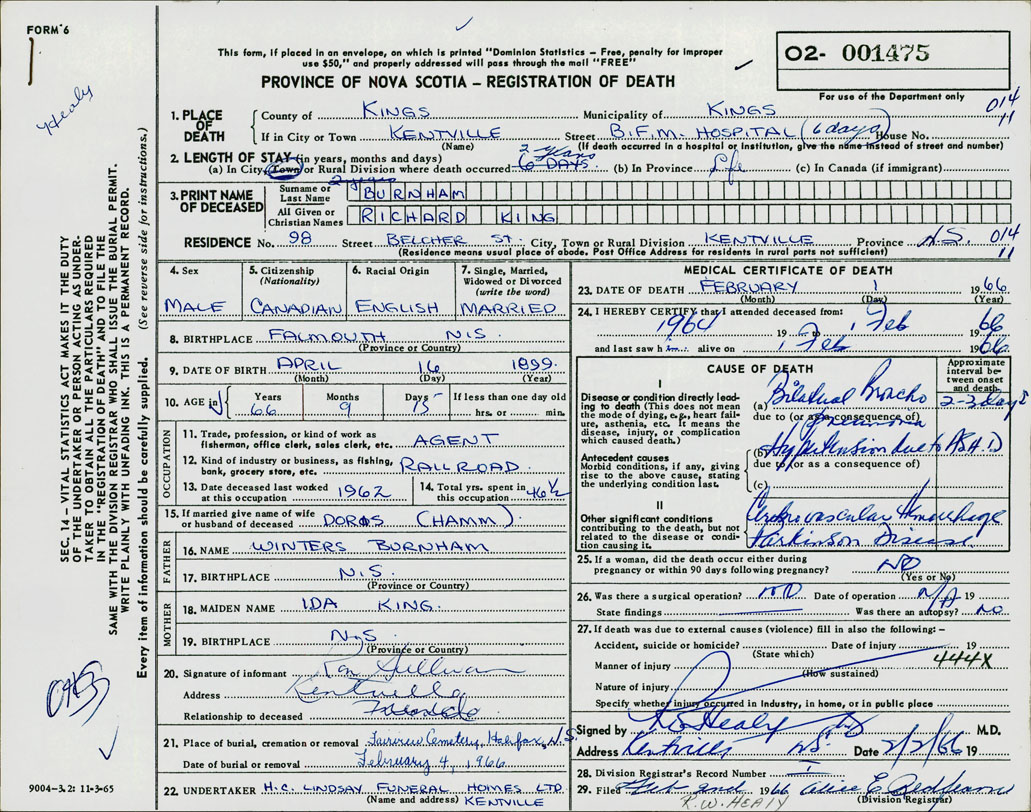 FORM 6
Healy
This form, if placed in an envelope, on which is printed "Dominion Statistics – Free, penalty for improper
use $50," and properly addressed will pass through the mail "FREE"
PROVINCE OF NOVA SCOTIA – REGISTRATION OF DEATH
O2- 001475
For use of the Department only
014
11
1. PLACE OF DEATH
County of KINGS Municipality of KINGS
If in City or Town KENTVILLE Street B.F.M. HOSPITAL (6 days) House No.
(Name) (If death occurred in a hospital or institution, give the name instead of street and number)
2. LENGTH OF STAY (in years, months and days) 2 years
(a) In City, Town or Rural Division where death occurred 6 DAYS (b) In Province Life (c) In Canada (if immigrant)
2 years
3. PRINT NAME OF DECEASED
Surname or Last Name BURNHAM
All Given or Christian Names RICHARD KING
RESIDENCE No. 98 Street BELCHER ST. City, Town or Rural Division KENTVILLE Province N.S. 014
(Residence means usual place of abode. Post Office Address for residents in rural parts not sufficient) 11
4. Sex MALE
5. Citizenship (Nationality) CANADIAN
6. Racial Origin ENGLISH
7. Single, Married, Widowed or Divorced (write the word) MARRIED
8. BIRTHPLACE FALMOUTH N.S.
(Province or Country)
9. DATE OF BIRTH APRIL 16 1899.
(Month) (Day) (Year)
10. AGE in Years 66 Months 9 Days 15 If less than one day old
hrs. or min.
OCCUPATION
11. Trade, profession, or kind of work as fisherman, office clerk, sales clerk, etc. AGENT
12. Kind of industry or business, as fishing, bank, grocery store, etc. RAILROAD.
13. Date deceased last worked at this occupation 1962
14. Total yrs. spent in this occupation 46½
15. If married give name of wife or husband of deceased DORIS (HAMM).
FATHER
16. NAME WINTERS BURNHAM
17. BIRTHPLACE N.S.
(Province or Country)
MOTHER
18. MAIDEN NAME IDA KING.
19. BIRTHPLACE N.S.
(Province or Country)
20. Signature of informant Sullivan
Address Kentville
Relationship to deceased
21. Place of burial, cremation or removal Fairview Cemetery, Halifax, N.S.
Date of burial or removal February 4, 1966
22. UNDERTAKER H.C. LINDSAY FUNERAL HOMES LTD.
(Name and address) KENTVILLE
MEDICAL CERTIFICATE OF DEATH
23. DATE OF DEATH FEBRUARY 1 1966
(Month) (Day) (Year)
24. I HEREBY CERTIFY that I attended deceased from:
1964 19 to 1 Feb 1966
and last saw him alive on 1 Feb 1966.
CAUSE OF DEATH
Approximate interval between onset and death
I
Disease or condition directly leading to death (This does not mean the mode of dying, e.g., heart failure, asthenia, etc. It means the disease, injury, or complication which caused death.)
(a) Bilateral Broncho 2-3 days
due to (or as a consequence of)
pneumonia
Antecedent causes
Morbid conditions, if any, giving rise to the above cause, stating the underlying condition last.
(b) Hypertension due to A.S.H.D
due to (or as a consequence of)
(c)
II
Other significant conditions contributing to the death, but not related to the disease or condition causing it.
Cerebrovascular Hemorrhage
Parkinson Disease
25. If a woman, did the death occur either during pregnancy or within 90 days following pregnancy? NO
(Yes or No)
26. Was there a surgical operation? NO Date of operation N/A 19
State findings Was there an autopsy? NO
27. If death was due to external causes (violence) fill in also the following: –
Accident, suicide or homicide? Date of injury 19
(State which)
444X
Manner of injury
(How sustained)
Nature of injury
Specify whether injury occurred in Industry, in home, or in public place
Signed by R W Healy MD M.D.
Address Kentville NS Date 2/2/66 19
28. Division Registrar's Record Number
29. Filed Feb 2nd 1966 Alice E
(Division Registrar)
R.W. HEALY
SEC. 14 – VITAL STATISTICS ACT MAKES IT THE DUTY
OF THE UNDERTAKER OR PERSON ACTING AS UNDER-
TAKER TO OBTAIN ALL THE PARTICULARS REQUIRED
IN THE "REGISTRATION OF DEATH" AND TO FILE THE
SAME WITH THE DIVISION REGISTRAR WHO SHALL ISSUE THE BURIAL PERMIT.
WRITE PLAINLY WITH UNFADING INK. THIS IS A PERMANENT RECORD.
Every item of information should be carefully supplied. (See reverse side for instructions.)
9004-3.2: 11-3-65